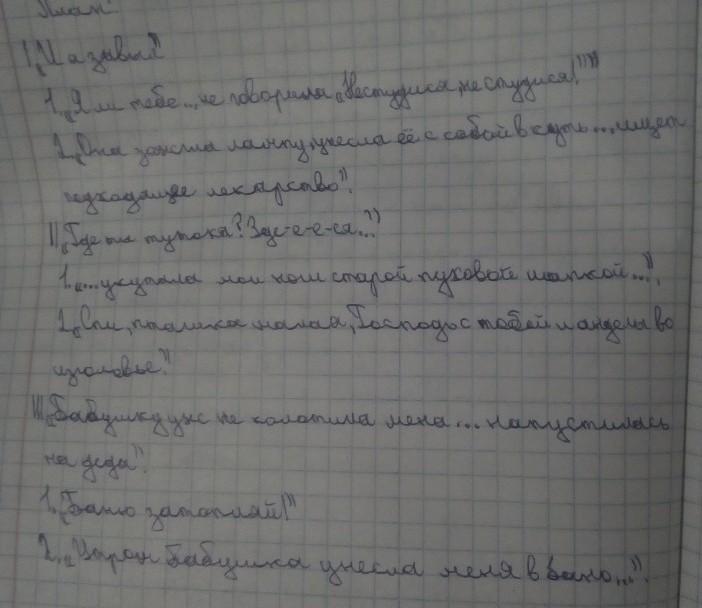 План
I. „Назвы"
1. „Я ли тебе... не говорила „Не студися, не студися!""
2. „Она зажгла лампу, унесла её с собой в куть... ищет
подходящее лекарство".
II. „Где ты тутока? Здс-е-е-ся..."
1. „...укутала мои ноги старой пуховой шалкой...".
2. „Спи, пташка малая, Господь с тобой и анделы во
изголовье".
III. „Бабушка уже не колотила меня... напустилась
на деда".
1. „Баню затопляй!"
2. „Утром бабушка унесла меня в баню...".